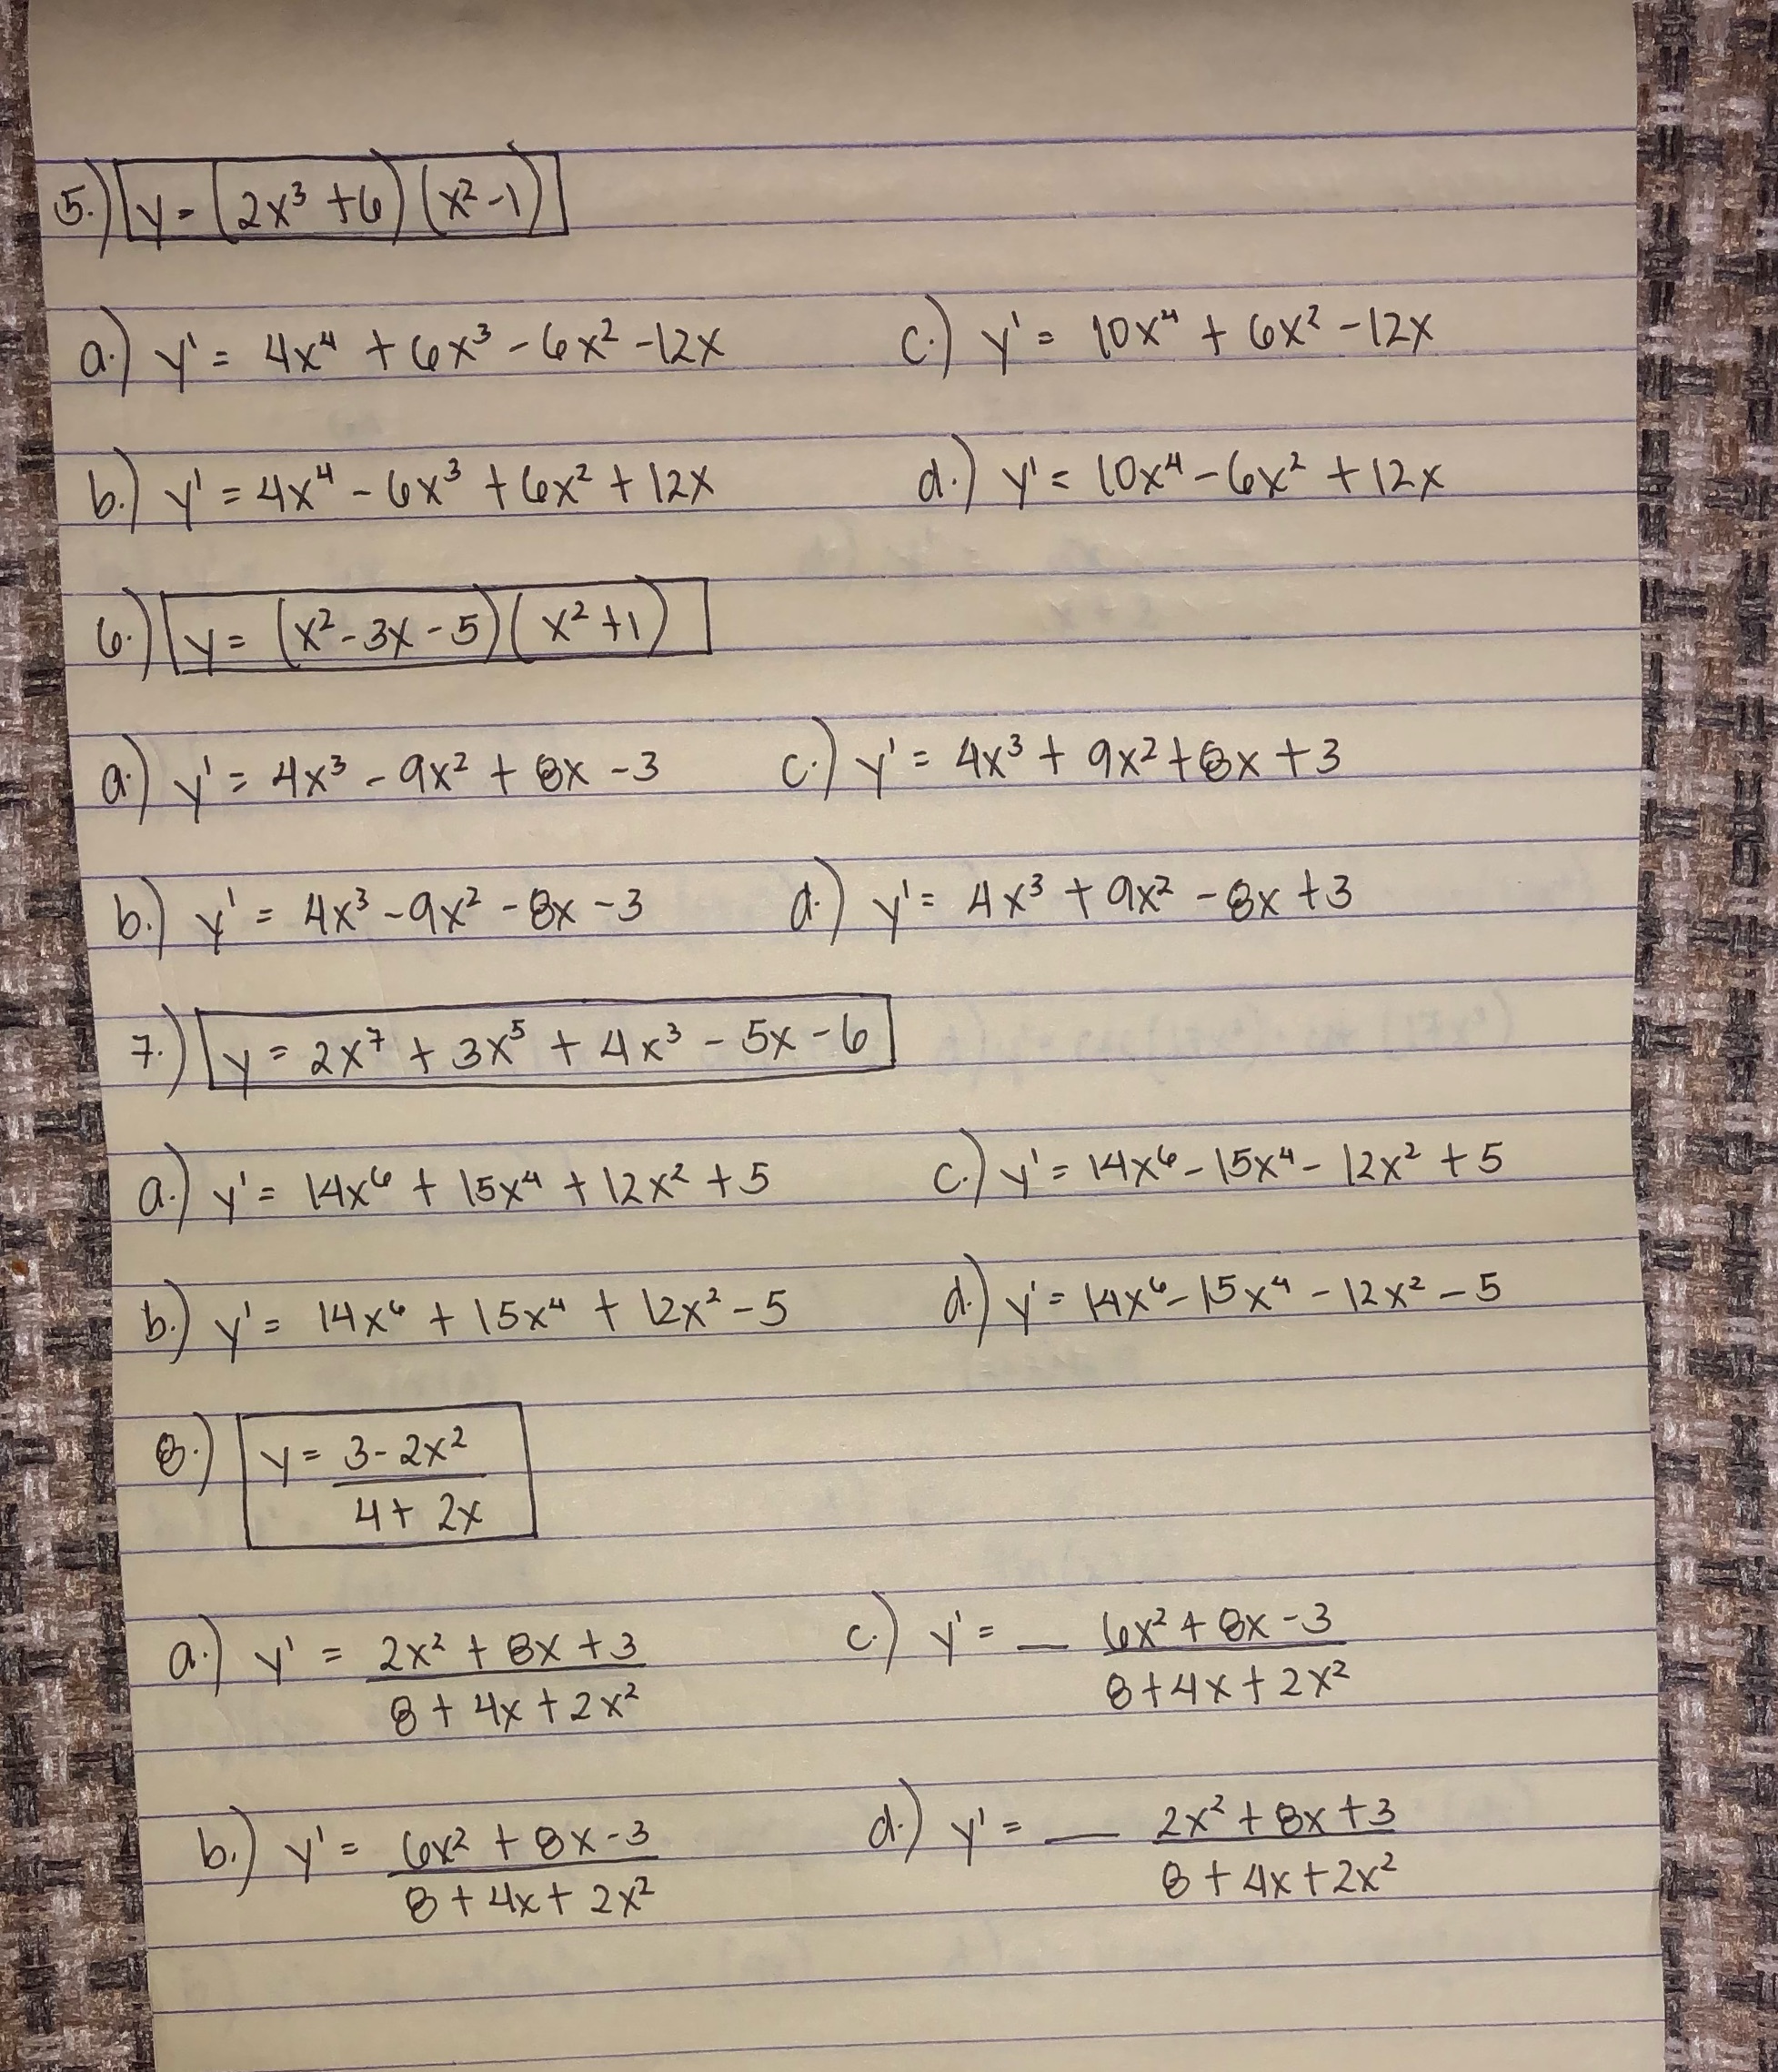 5.) y = (2x³ + 6) (x² - 1)
a.) y' = 4x⁴ + 6x³ - 6x² - 12x c.) y' = 10x⁴ + 6x² - 12x
b.) y' = 4x⁴ - 6x³ + 6x² + 12x d.) y' = 10x⁴ - 6x² + 12x
6.) y = (x² - 3x - 5) (x² + 1)
a.) y' = 4x³ - 9x² + 8x - 3 c.) y' = 4x³ + 9x² + 8x + 3
b.) y' = 4x³ - 9x² - 8x - 3 d.) y' = 4x³ + 9x² - 8x + 3
7.) y = 2x⁷ + 3x⁵ + 4x³ - 5x - 6
a.) y' = 14x⁶ + 15x⁴ + 12x² + 5 c.) y' = 14x⁶ - 15x⁴ - 12x² + 5
b.) y' = 14x⁶ + 15x⁴ + 12x² - 5 d.) y' = 14x⁶ - 15x⁴ - 12x² - 5
8.) y = 3 - 2x²
4 + 2x
a.) y' = 2x² + 8x + 3 c.) y' = - 6x² + 8x - 3
8 + 4x + 2x² 8 + 4x + 2x²
b.) y' = 6x² + 8x - 3 d.) y' = - 2x² + 8x + 3
8 + 4x + 2x² 8 + 4x + 2x²